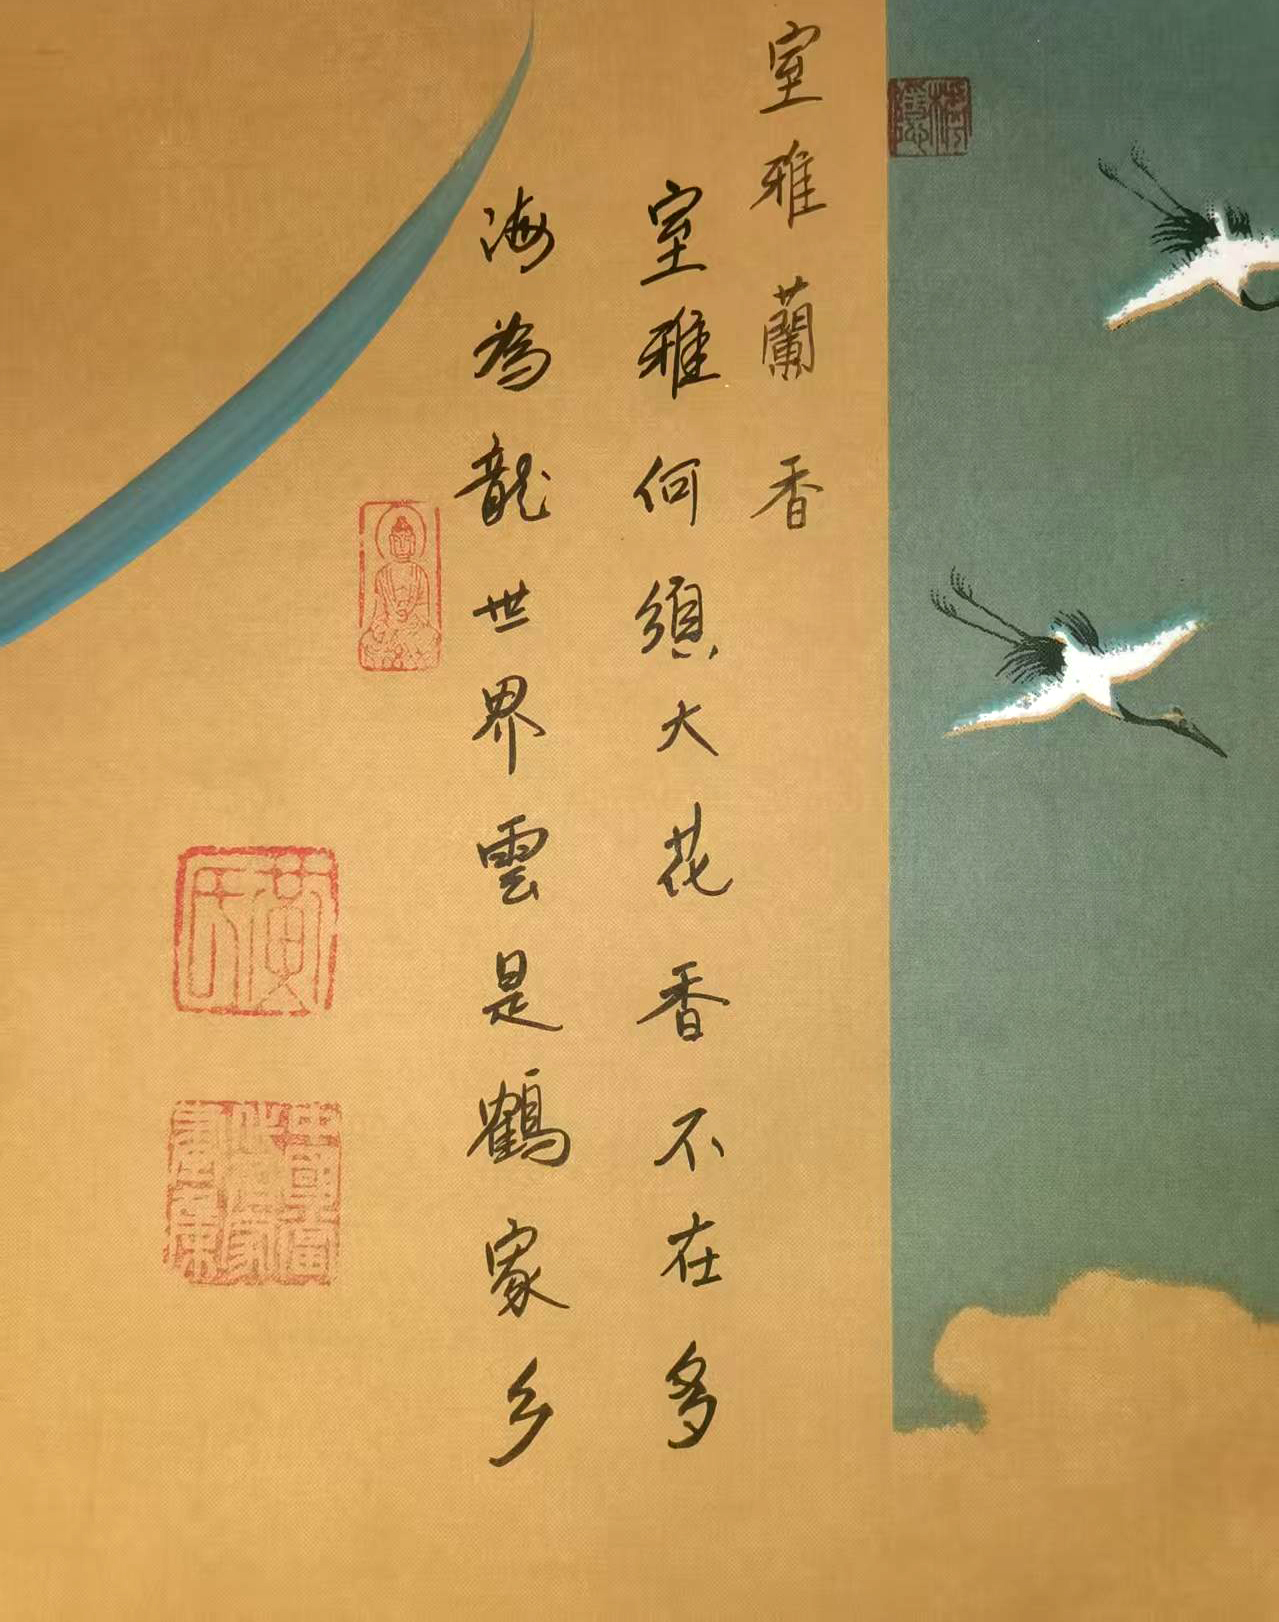 室雅蘭香
室雅何須大花香不在多
海為龍世界雲是鶴家乡